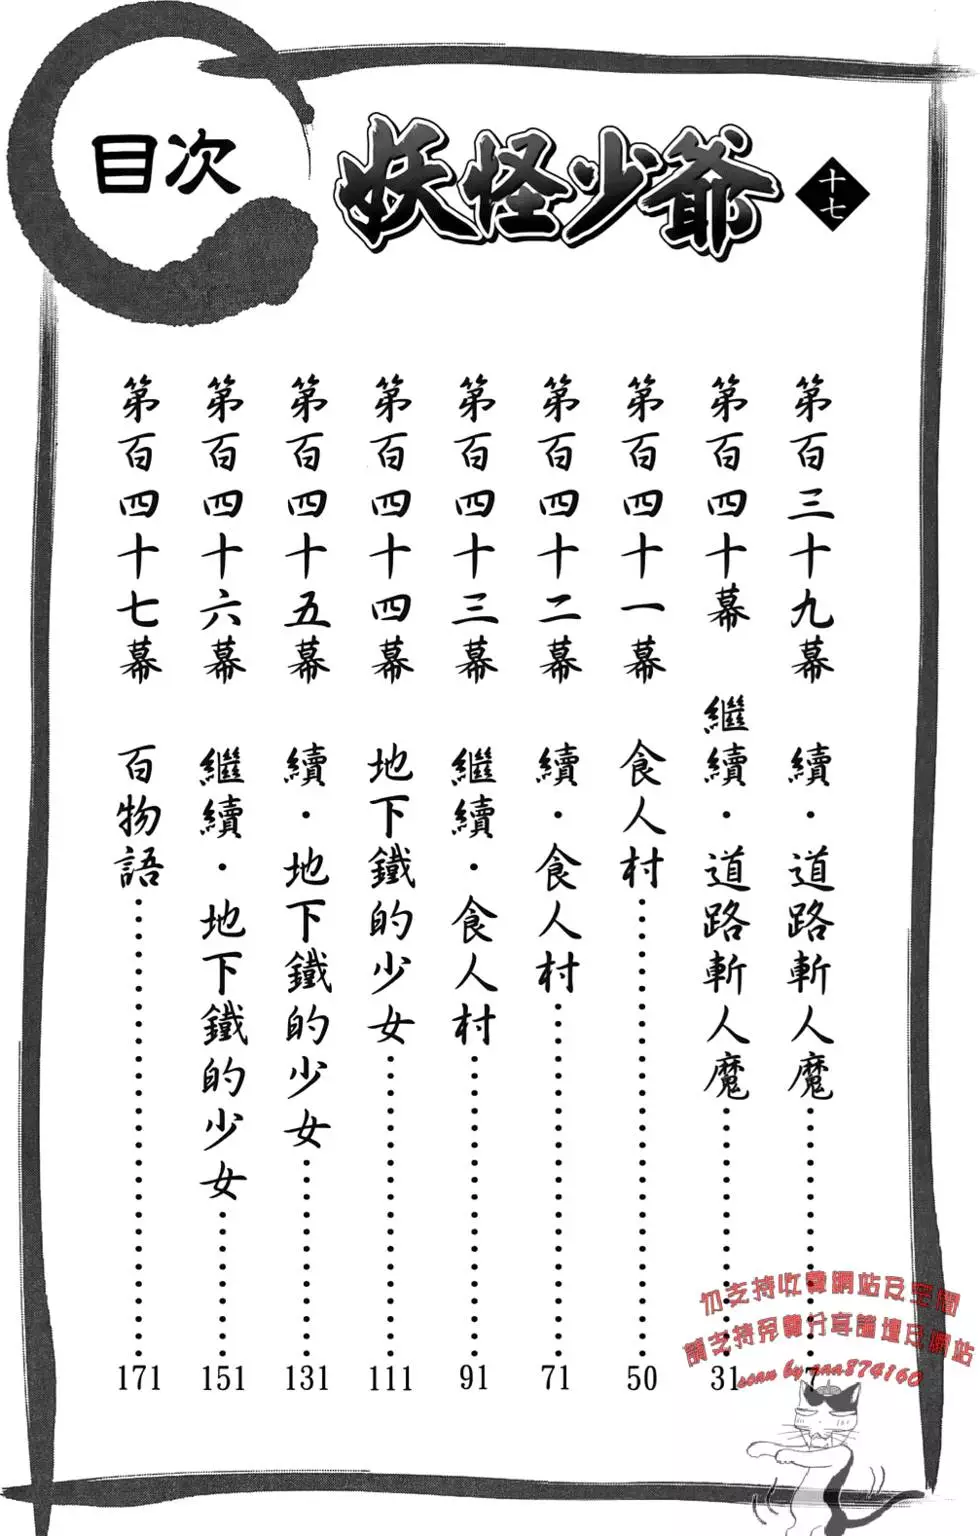 目次
妖怪少爺
十七
第百三十九幕 續・道路斬人魔……7
第百四十幕 繼續・道路斬人魔……31
第百四十一幕 食人村……50
第百四十二幕 續・食人村……71
第百四十三幕 繼續・食人村……91
第百四十四幕 地下鐵的少女……111
第百四十五幕 續・地下鐵的少女……131
第百四十六幕 繼續・地下鐵的少女……151
第百四十七幕 百物語……171
勿支持收費網站及空間
請支持免費分享論壇及網站
scan by ann874160